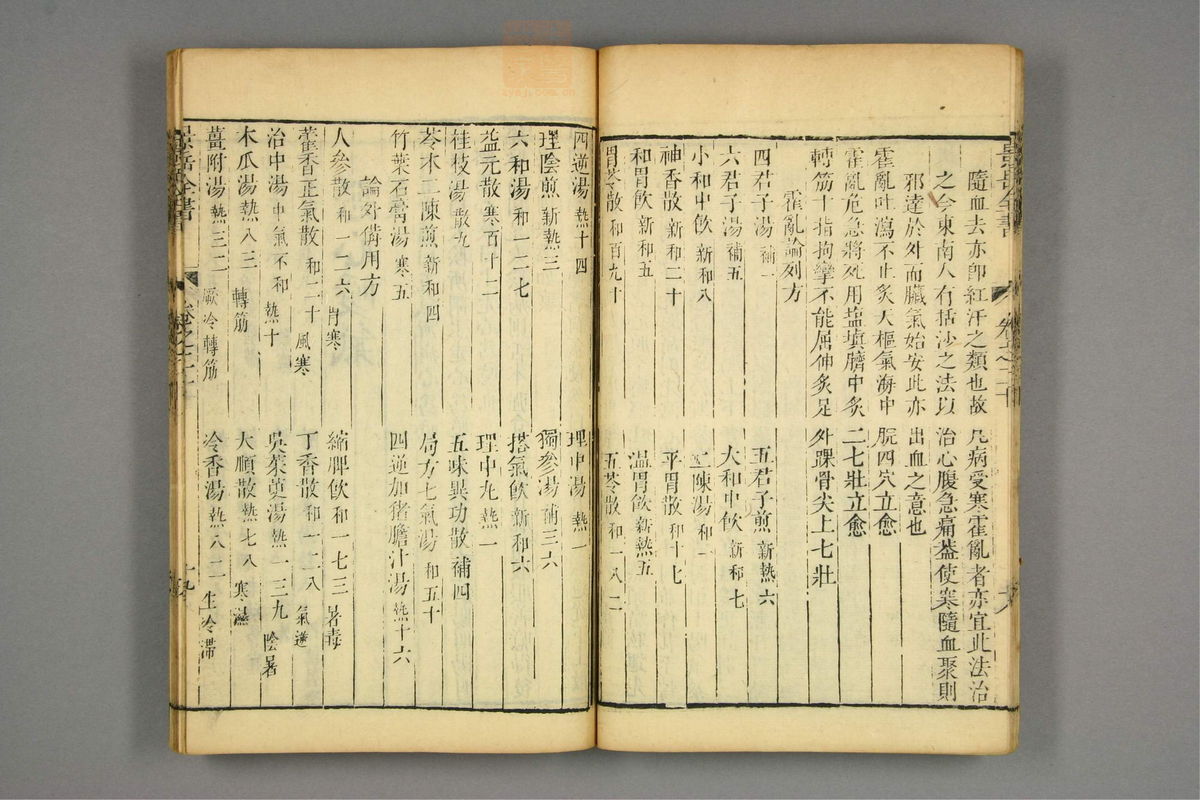 隨血去亦即紅汗之類也故凡病受寒霍亂者亦宜此法治
之今東南人有括沙之法以治心腹急痛葢使寒隨血聚則
邪達於外而臟氣始安此亦出血之意也
霍亂吐瀉不止炙天樞氣海中脘四穴立愈
霍亂危急將死用塩填臍中炙二七壯立愈
轉筋十指拘攣不能屈伸炙足外踝骨尖上七壯
霍亂論列方
四君子湯 補一 五君子煎 新熱六
六君子湯 補五 大和中飲 新和七
小和中飲 新和八 二陳湯 和一
神香散 新和二十 平胃散 和十七
和胃飲 新和五 溫胃飲 新熱五
胃苓散 和百九十 五苓散 和一八二
四逆湯 熱十四 理中湯 熱一
理陰煎 新熱三 獨參湯 補三六
六和湯 和一二七 搭氣飲 新和六
益元散 寒百十二 理中丸 熱一
桂枝湯 散九 五味異功散 補四
苓术二陳煎 新和四 局方七氣湯 和五十
竹葉石膏湯 寒五 四逆加猪膽汁湯 熱十六
論外備用方
人參散 和一二六 胃寒 縮脾飲 和一七三 暑毒
藿香正氣散 和二十 風寒 丁香散 和一二八 氣逆
治中湯 中氣不和 熱十 吳茱萸湯 熱一三九 陰暑
木瓜湯 熱八三 轉筋 大順散 熱七八 寒濕
薑附湯 熱三二 厥冷轉筋 冷香湯 熱八二 生冷滯
景岳全書 卷之二十 十九